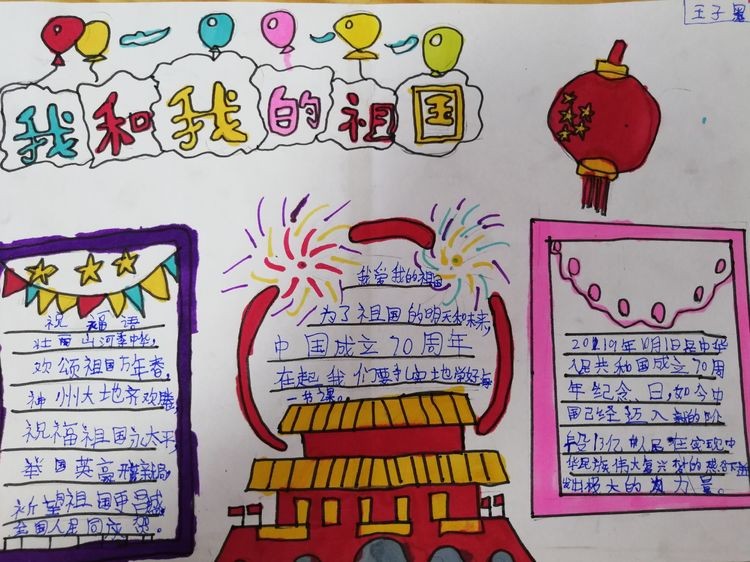 王子墨
我和我的祖国
祝福语
壮丽山河秀中华,
欢颂祖国万年春,
神州大地齐欢腾,
祝福祖国永太平,
举国英豪新局,
祈望祖国更昌盛,
全国人民同
我爱我的祖国
为了祖国的明天和未来,
中国成立70周年
在起我们要扎实地学好每
一节课。
2019年10月1日是中华
人民共和国成立70周
年纪念日,如今中
国已经迈入新的阶
段13亿人民在实现中
华民族伟大复兴梦的
出极大的力量。